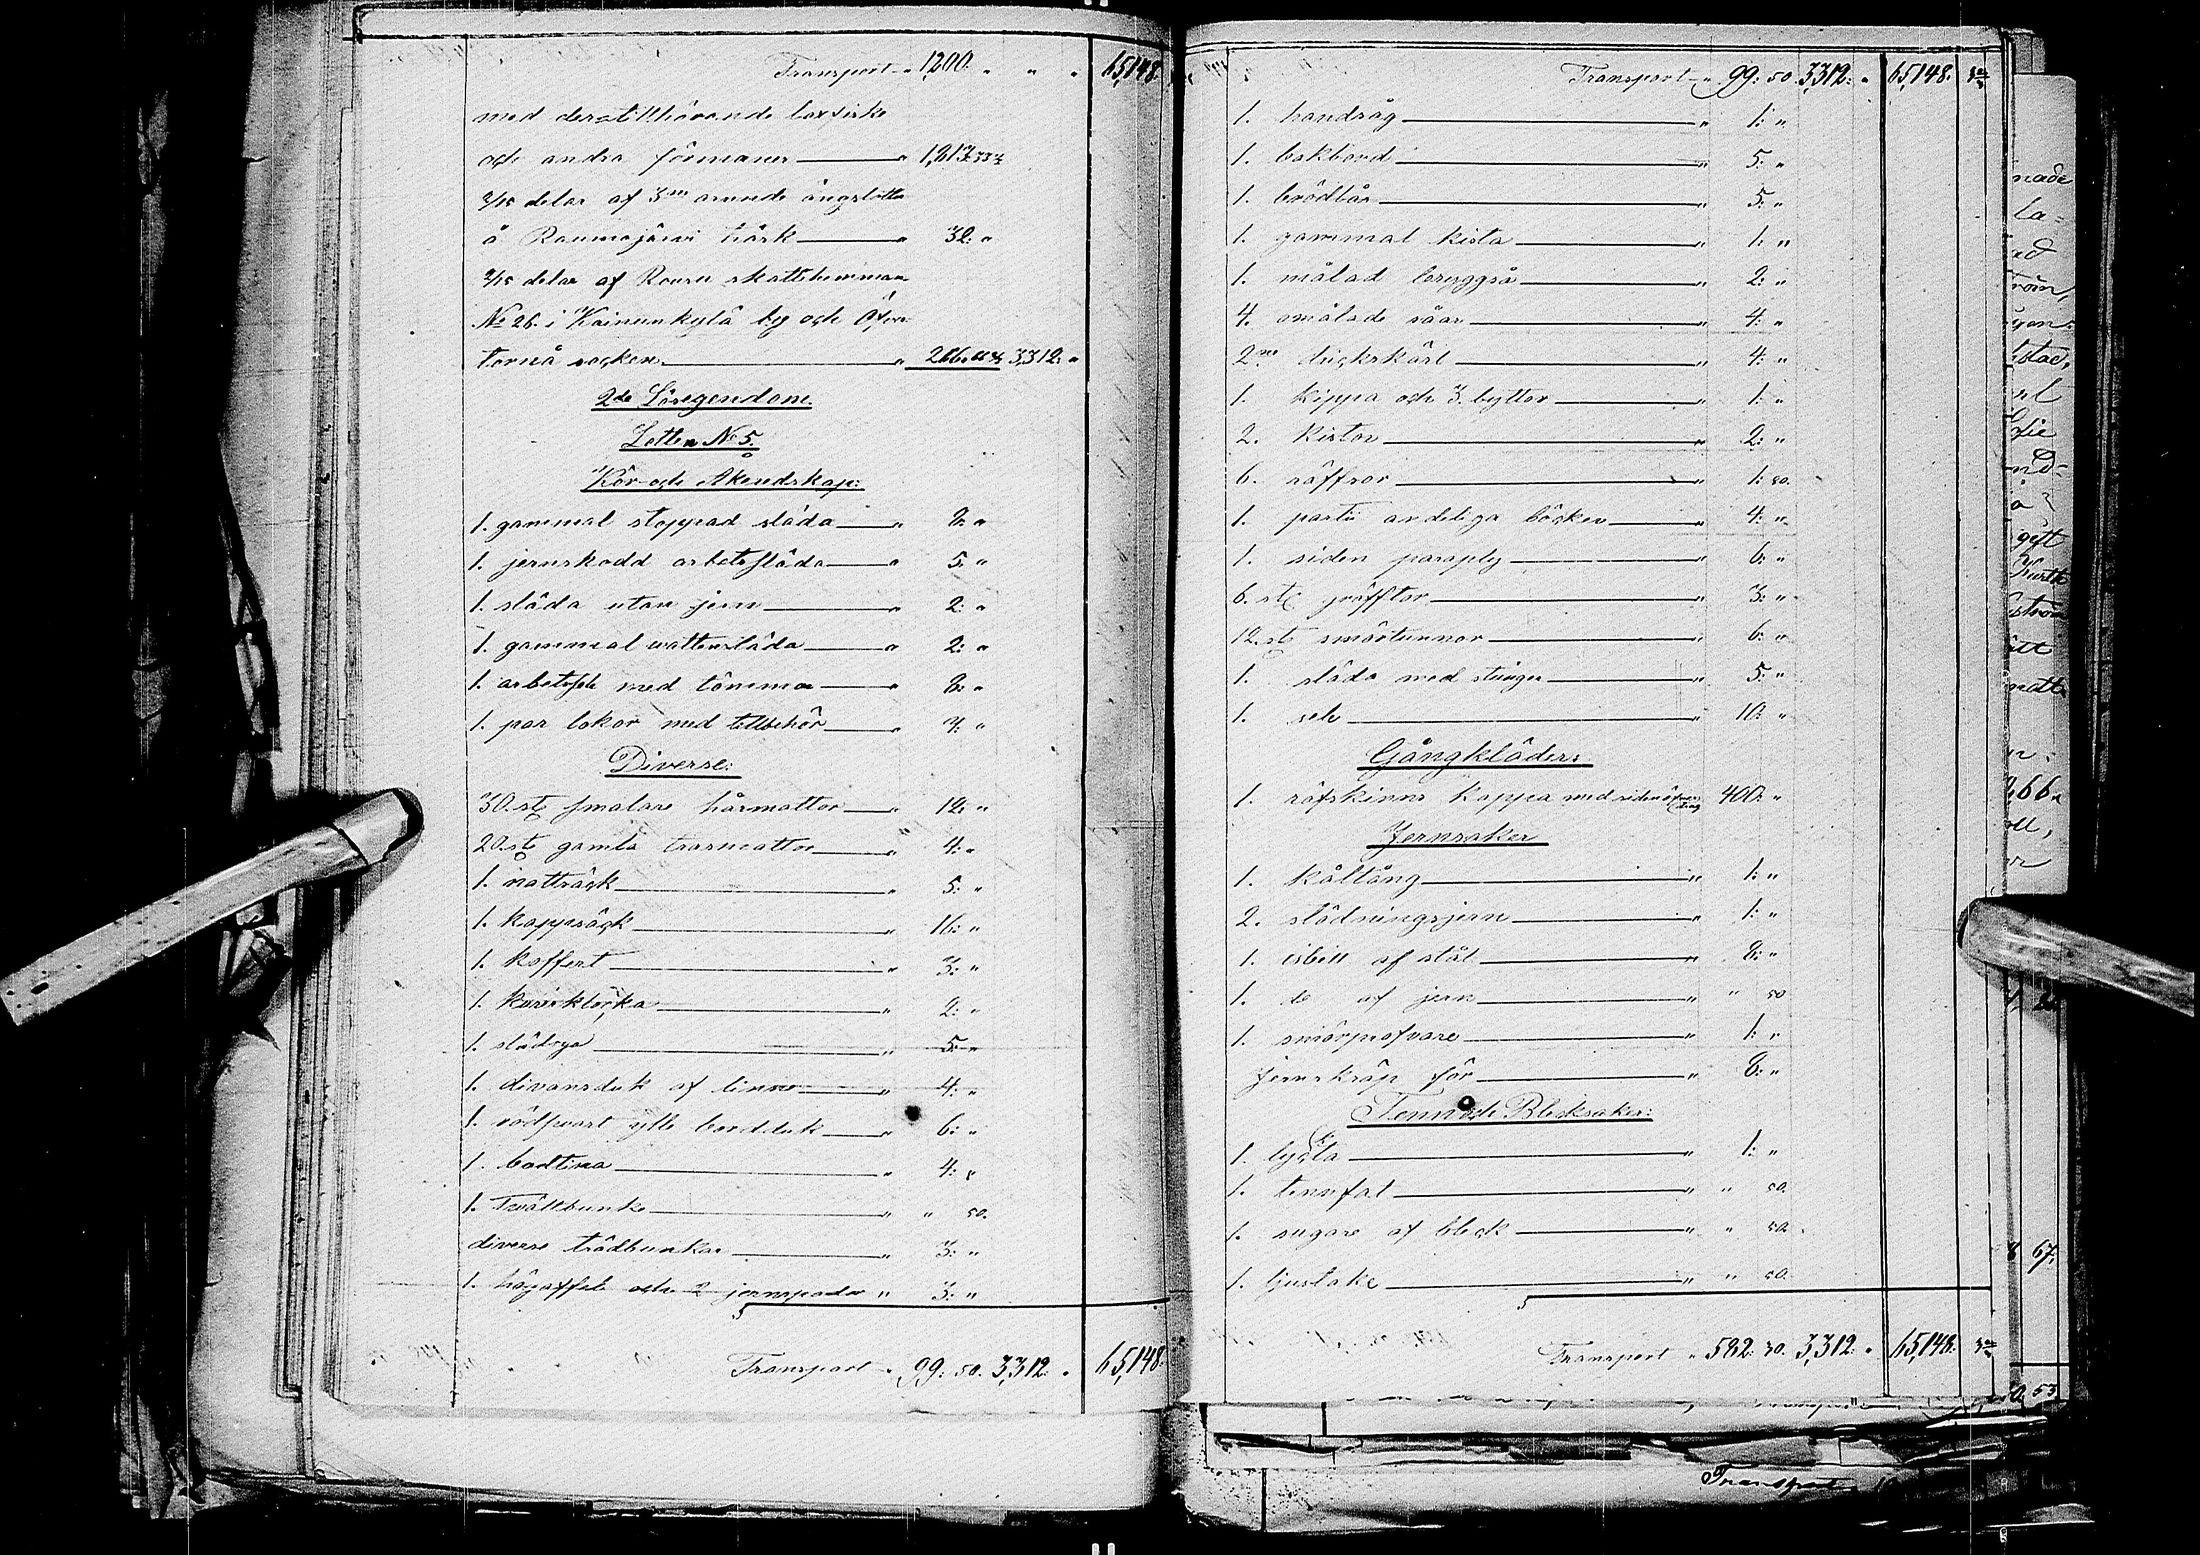 Transport " 1200. " " " 65,148.
med dertillhörande laxfiske
och andra förmåner " 1,813. 33⅓
2/15 delar af 3ne arnude ängslotter
å Raumojärvi träsk " 32: "
2/15 delar af Kouru skattehemman
No 26. i Kainuunkylä by och Öfver
torneå socken " 266. 66⅔ 3,312: "
2do Lösegendom.
Lotten No 5.
Kör- och Åkeredskap:
1. gammal stoppad släda " 8: "
1. jernskodd arbetssläda " 5: "
1. släda utan jern " 2: "
1. gammal vattensläda " 2: "
1. arbetssele med tömmar " 8: "
1. par lokor med tillbehör " 4: "
Diverse:
30. st. smalare hårmattor " 12: "
20. st. gamla trasmattor " 4: "
1. nattsäck " 5: "
1. kappsäck " 16: "
1. koffert " 3: "
1. kurirklocka " 2: "
1. slädrya " 5: "
1. divansduk af linne " 4: "
1. rödsvart ylle bordduk " 6: "
1. badtina " 4: "
1. Tvättbunke " " 50.
diverse trädbunkar " 3: "
1. högaffel och 2 jernspadar " 3: "
Transport " 99: 50. 3,312: " 65,148.
Transport " 99: 50. 3,312: " 65,148.
1. handsåg " 1: "
1. bakbord " 5: "
1. brödbår " 5: "
1. gammal kista " 1: "
1. målad bryggså " 2: "
4. omålade såar " 4: "
2ne drickskärl " 4: "
1. kippa och 3. byttor " 1: "
2. kistor " 2: "
6. räffsor " 1: 80.
1. parti andeliga böcker " 4: "
1. siden paraply " 6: "
6. st. " 3: "
12. st. smörtunnor " 6: "
1. släda med stänger " 5: "
1. sele " 10: "
Gångkläder:
1. räfskinns kappa med siden 400: "
Jernsaker
1. kåltång " 1: "
2. slädningsjern " 1: "
1. isbill af stål " 8: "
1. do af jern " " 50
1. smörprofvare " 1: "
Jernskråp för " 8: "
Tenn och Blecksaker:
1. lykta " 1: "
1. tennfat " " 50.
1. sugare af bleck " " 50.
1. ljustake " " 50.
Transport " 582: 30. 3,312: " 65,148.
Transport